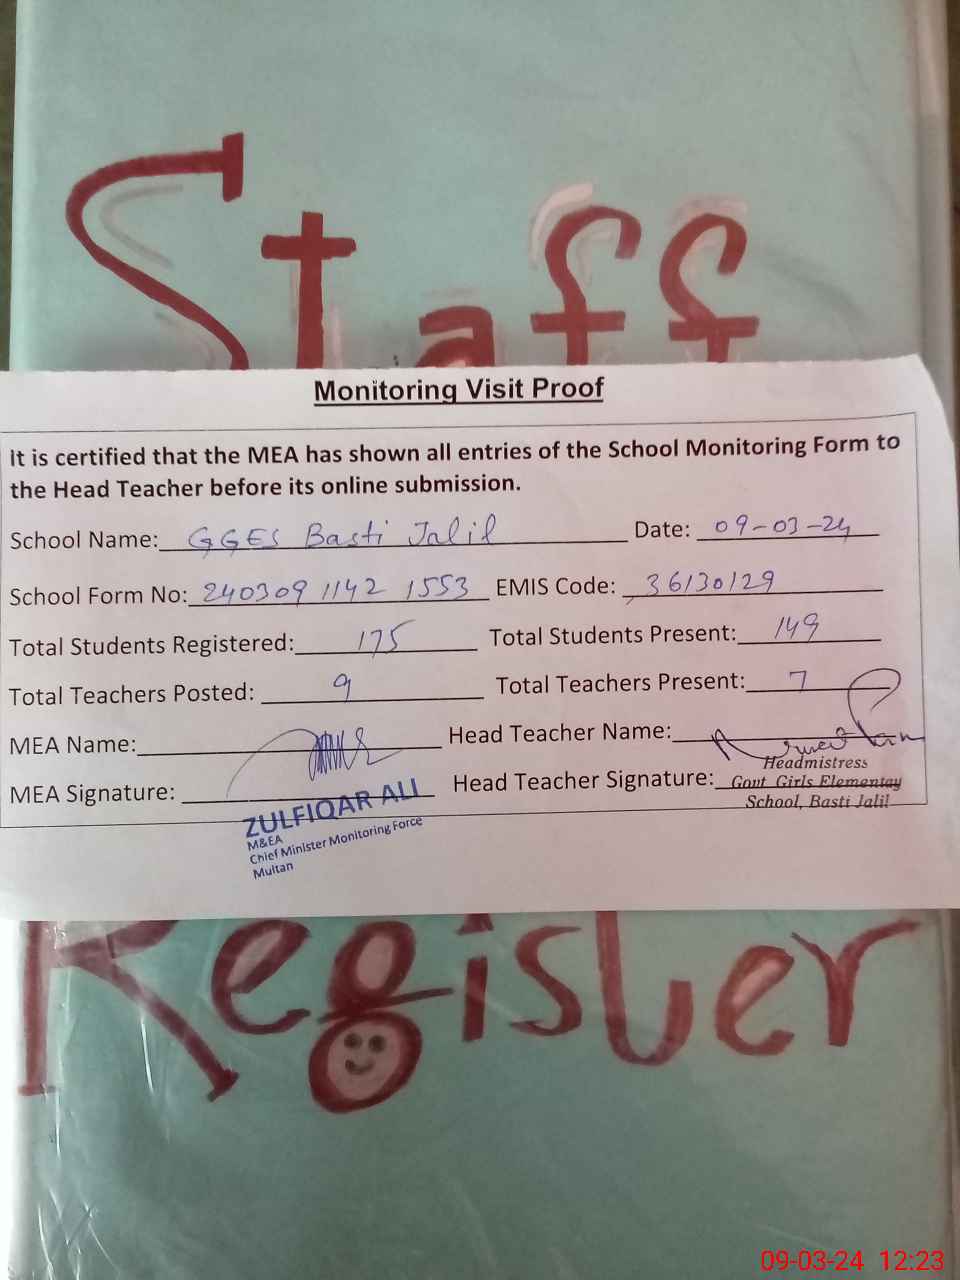 Staff
Monitoring Visit Proof
It is certified that the MEA has shown all entries of the School Monitoring Form to
the Head Teacher before its online submission.
School Name: GGES Basti Jalil Date: 09-03-24
School Form No: 240309 1142 1553 EMIS Code: 36130129
Total Students Registered: 175 Total Students Present: 149
Total Teachers Posted: 9 Total Teachers Present: 7
MEA Name: Head Teacher Name:
Headmistress
MEA Signature: Head Teacher Signature: Govt Girls Elementay
School, Basti Jalil
ZULFIQAR ALI
M&EA
Chief Minister Monitoring Force
Multan
Register
09-03-24 12:23